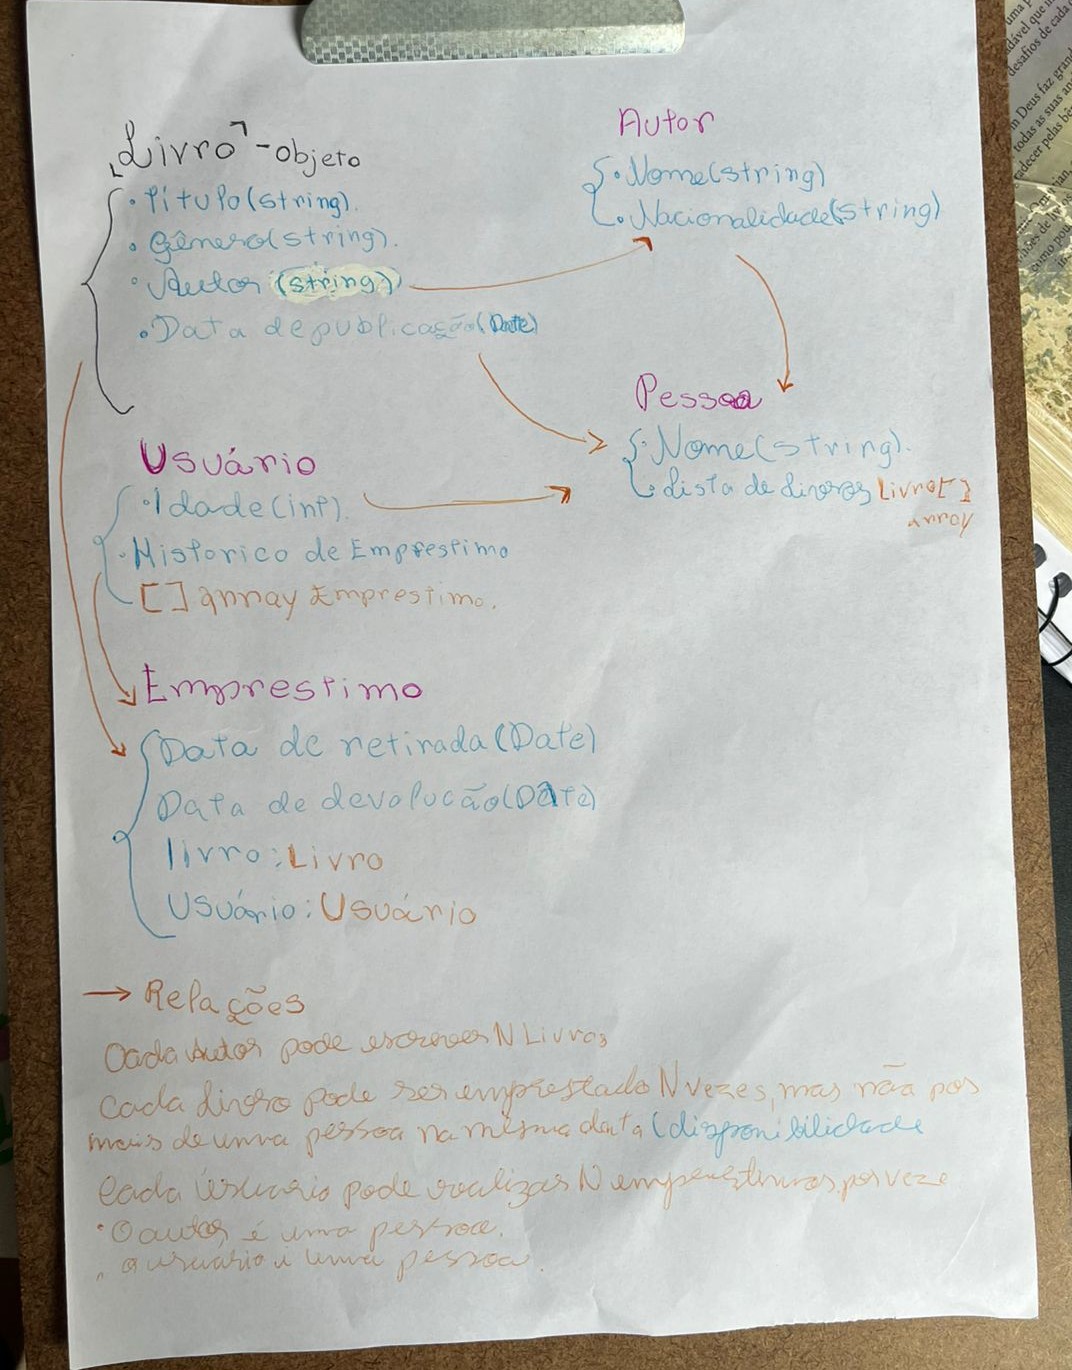 Livro - objeto
• Título (string).
• Gênero (string).
• Autor (string)
• Data de publicação (Date)
Autor
• Nome (string)
• Nacionalidade (string)
Pessoa
• Nome (string).
• Lista de livros Livro[]
array
Usuário
• Idade (int).
• Historico de Emprestimo
[] array Emprestimo.
Emprestimo
Data de retirada (Date)
Data de devolucão (Date)
livro: Livro
Usuário: Usuário
→ Relações
Cada Autor pode escrever N Livros
Cada livro pode ser emprestado N vezes, mas não por
mais de uma pessoa na mesma data (disponibilidade
Cada usuario pode realizar N emprestimos por veze
• O autor é uma pessoa.
• o usuário é uma pessoa.
uma p
dável que in
desafios de cada
m Deus faz grand
todas as suas
adecer pelas